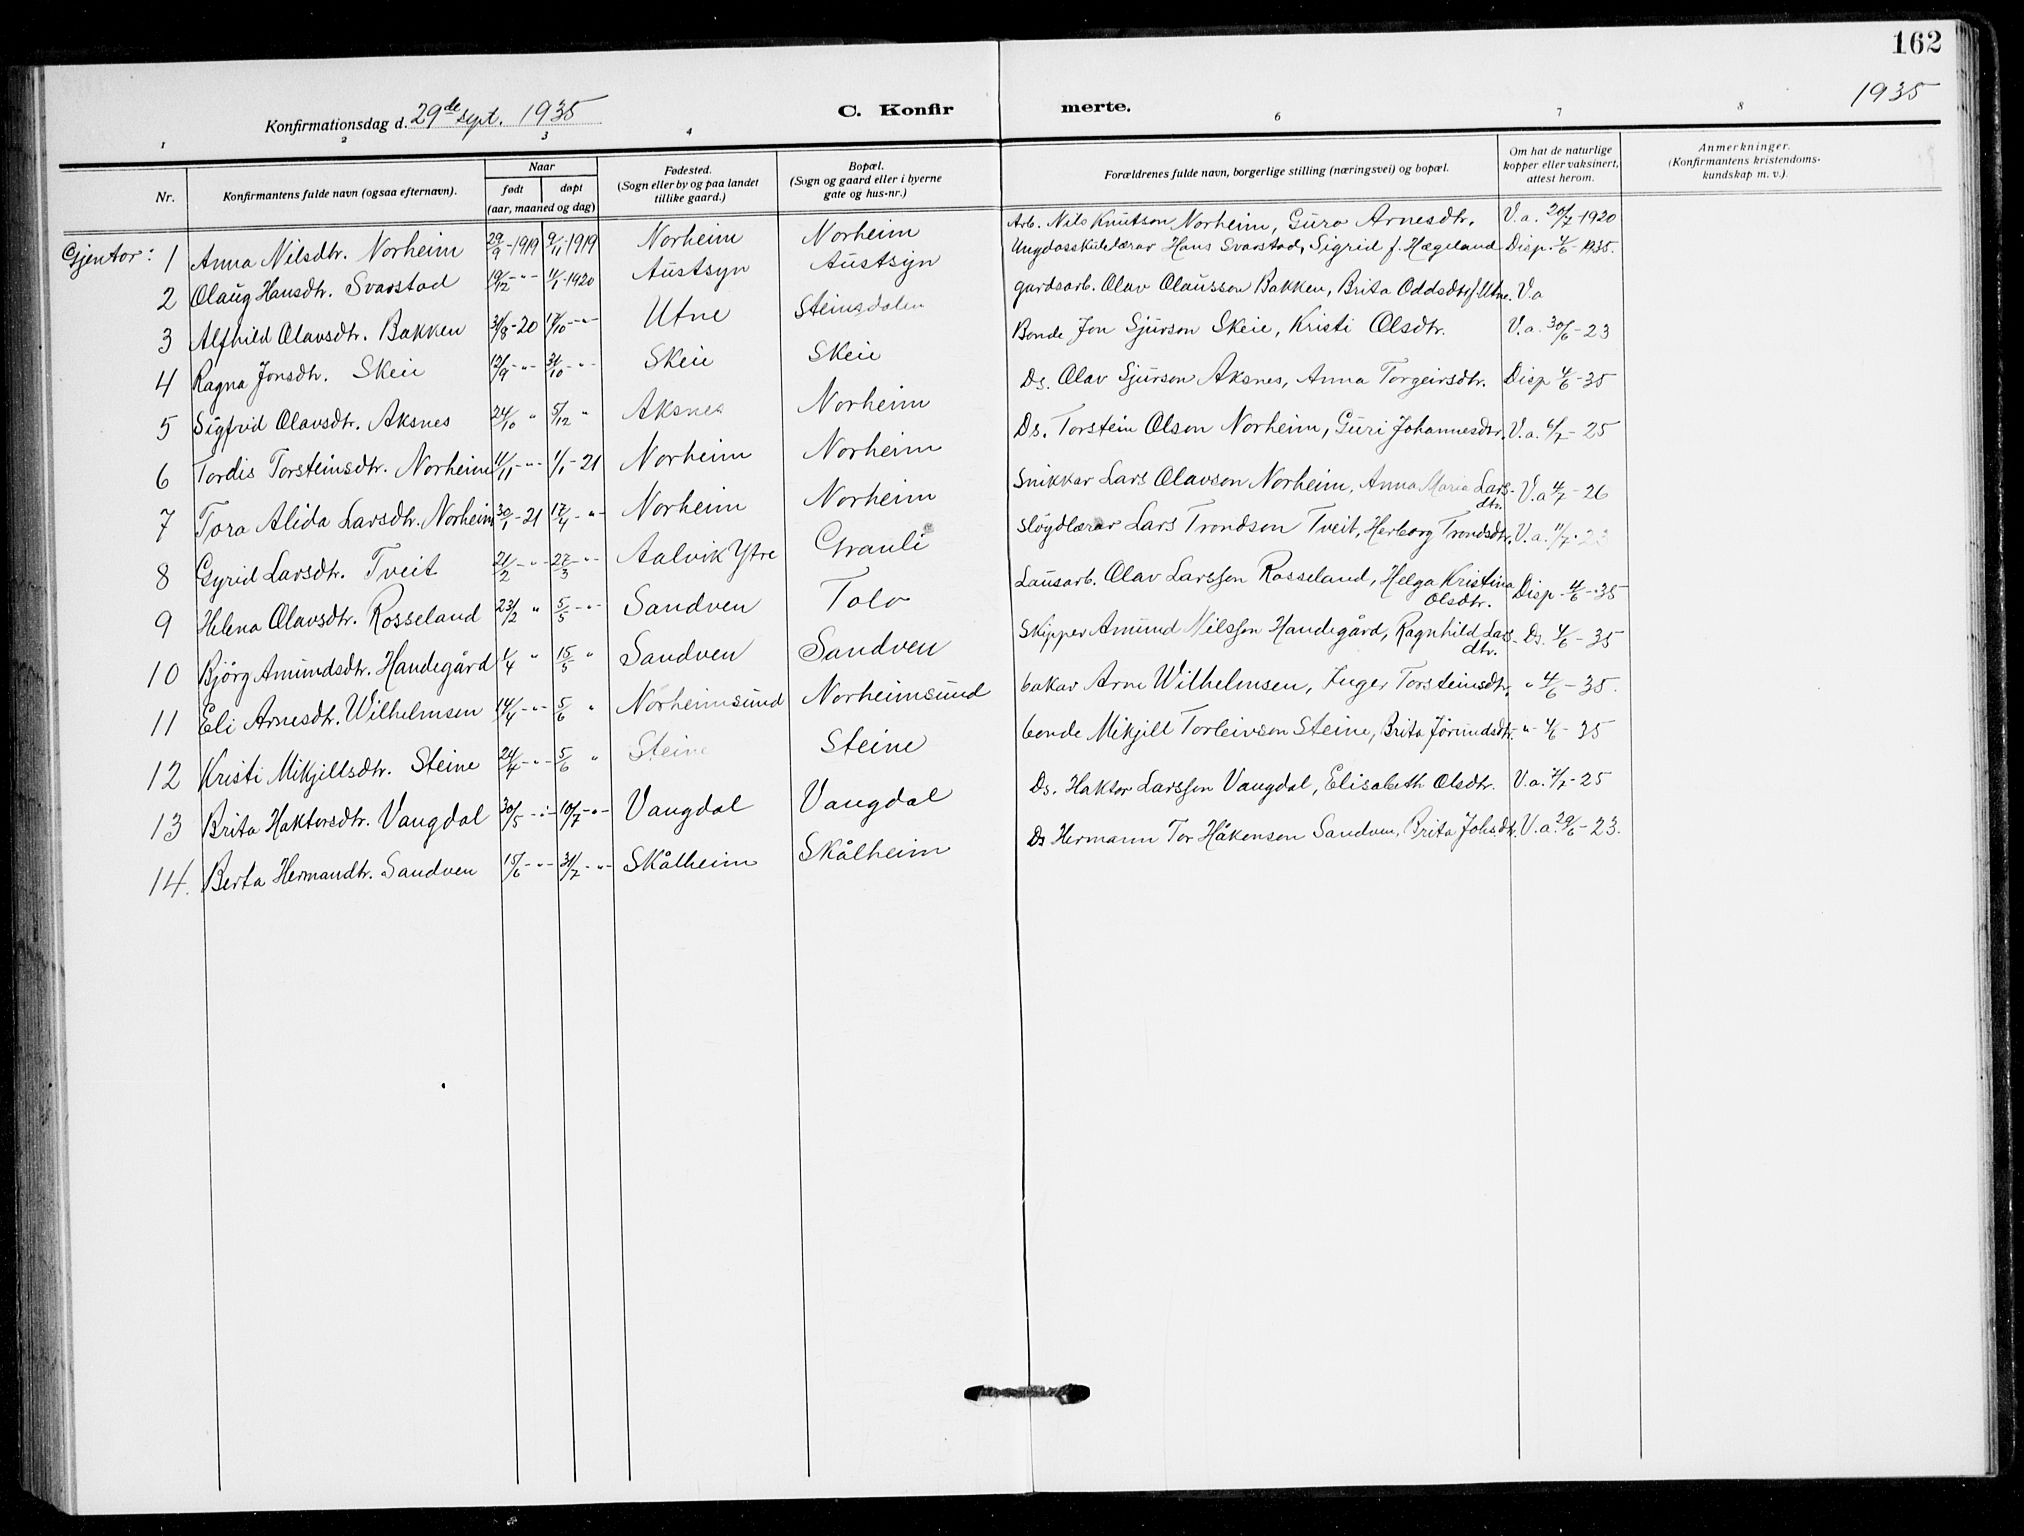 162
1935
Konfirmationsdag d. 29de sept. 1935
C. Konfir merte.
1 2 3 4 6 7 8
Nr.
Konfirmantens fulde navn (ogsaa efternavn).
Naar
født døpt
(aar, maaned og dag)
Fødested.
(Sogn eller by og paa landet
tillike gaard.)
Bopæl.
(Sogn og gaard eller i byerne
gate og hus-nr.)
Forældrenes fulde navn, borgerlige stilling (næringsvei) og bopæl.
Om hat de naturlige
kopper eller vaksinert,
attest herom.
Anmerkninger.
(Konfirmantens kristendoms-
kundskap m. v.).
Gjentor:
1 Anna Nilsdtr. Norheim 29/9-1919 9/11-1919 Norheim Norheim Arb. Nils Knutson Norheim, Guro Arnesdtr. V.a. 20/7-1920
2 Olaug Hansdtr. Svarstad 19/12 -"- 11/1-1920 Austsyn Austsyn Ungdosskulelærar Hans Svarstad, Sigrid f. Hægeland Disp. 4/6-1935.
3 Alfhild Olavsdtr. Bakken 31/8-20 17/10 -"- Utne Steinsdalen gardsarb. Olav Olausson Bakken, Brita Oddsdtr f. Utne. V.a
4 Ragna Jonsdtr. Skeie 12/9 -"- 31/10 -"- Skeie Skeie Bonde Jon Sjurson Skeie, Kristi Olsdtr. V.a. 30/6-23
5 Sigfrid Olavsdtr. Aksnes 24/10 " 5/12 " Aksnes Norheim Ds. Olav Sjurson Aksnes, Anna Torgeirsdtr. Disp 4/6-35
6 Tordis Torsteinsdtr. Norheim 11/11 -"- 1/1-21 Norheim Norheim Ds. Torstein Olson Norheim, Guri Johannesdtr. V.a. 6/7-25
7 Tora Alida Larsdtr. Norheim 30/1-21 17/4 -"- Norheim Norheim Snikkar Lars Olavson Norheim, Anna Maria Lars-
dtr. V.a 4/7-26
8 Gyrid Larsdtr. Tveit 21/2 -"- 27/3 -"- Aalvik Ytre Grauli sløydlærar Lars Trondson Tveit, Herborg Trondsdtr. V.a. 11/7-23
9 Helena Olavsdtr. Rosseland 23/2 " 5/5 -"- Sandven Tolo Lausarb. Olav Larsson Rosseland, Helga Kristina
Olsdtr. Disp. 4/6-35
10 Bjørg Amundsdtr. Handegård 1/4 " 15/5 " Sandven Sandven Skipper Amund Nilsson Handegård, Ragnhild Lars-
dtr. Ds. 4/6-35
11 Eli Arnesdtr. Wilhelmsen 14/4 -"- 5/6 " Norheimsund Norheimsund bakar Arne Wilhelmsen, Inger Torsteinsdtr, " 4/6-35.
12 Kristi Mikjillsdtr. Steine 24/4 -"- 5/6 " Steine Steine bonde Mikjill Torleivson Steine, Brita Jørundsdtr. -"- 4/6-35
13 Brita Haktorsdtr. Vangdal 30/5 -"- 10/7 -"- Vangdal Vangdal Ds. Haktor Larsson Vangdal, Elisabeth Olsdtr. V.a. 7/7-25
14. Berta Hermandtr. Sandven 15/6 -"- 31/7 -"- Skålheim Skålheim Ds Hermann Tor Håkonson Sandven, Brita Johsdtr. V.a. 29/6-23.